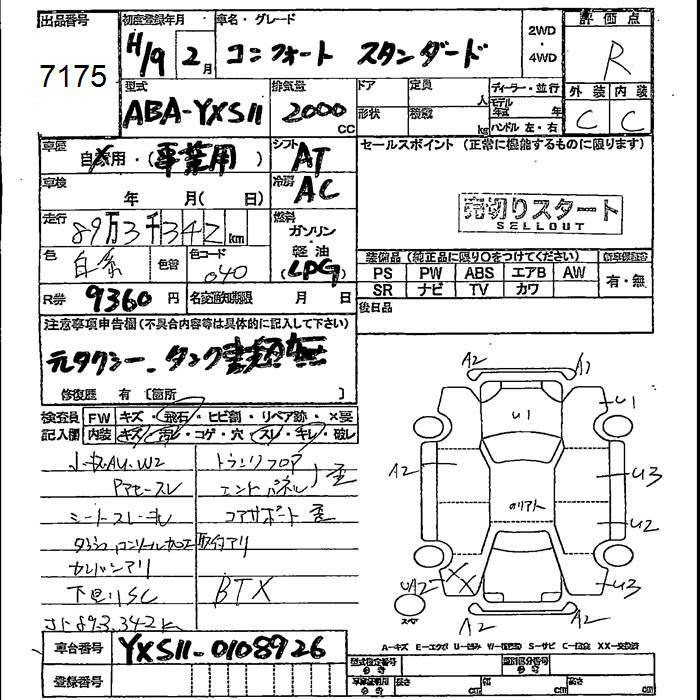 出品番号 初度登録年月 車名・グレード 2WD ・ 4WD 評価点
7175 H/9 2月 コンフォート スタンダード R
型式 排気量 ドア 定員 人 ディーラー・並行 外装 内装
ABA-YXS11 2000 CC 形状 積載 kg モデル 年 ハンドル 左・右 C C
車歴 自家用・(事業用) シフト AT セールスポイント (正常に機能するものに限ります)
車検 年 月( 日) 冷房 AC
売切りスタート
SELLOUT
走行 89万3千342km 燃料 ガソリン・軽油 (LPG)
色 白系 色替 色コード 040
装備品 (純正品に限り○をつけてください) 新車保証書
PS PW ABS エアB AW 有・無
SR ナビ TV カワ
R券 9360円 名変通知期限 月 日 後日品
注意事項申告欄 (不具合内容等は具体的に記入して下さい)
元タクシー、タンク書類無
修復歴 有 〔箇所 〕
検査員 FW キズ・飛石・ヒビ割・リペア跡・×要
記入欄 内装 キズ・汚レ・コゲ・穴・スレ・キレ・破レ
AU.W2 トランクフロア
エンドパネル 歪
シートスレ・キレ コアサポート 歪
取付アリ
下回りSC BTX
893,342k
車台番号 YXS11-0108926
登録番号
A2 A2
U1 U1
A2 U3
U2
UA2 XX U3
スペア
A2 A2
A-キズ E-エクボ U-凹ミ S-サビ XX-交換済
型式指定番号 類別区分番号
長さ 幅 高さ